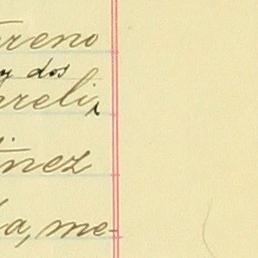 reno
y dos
reli
inez
a, me-